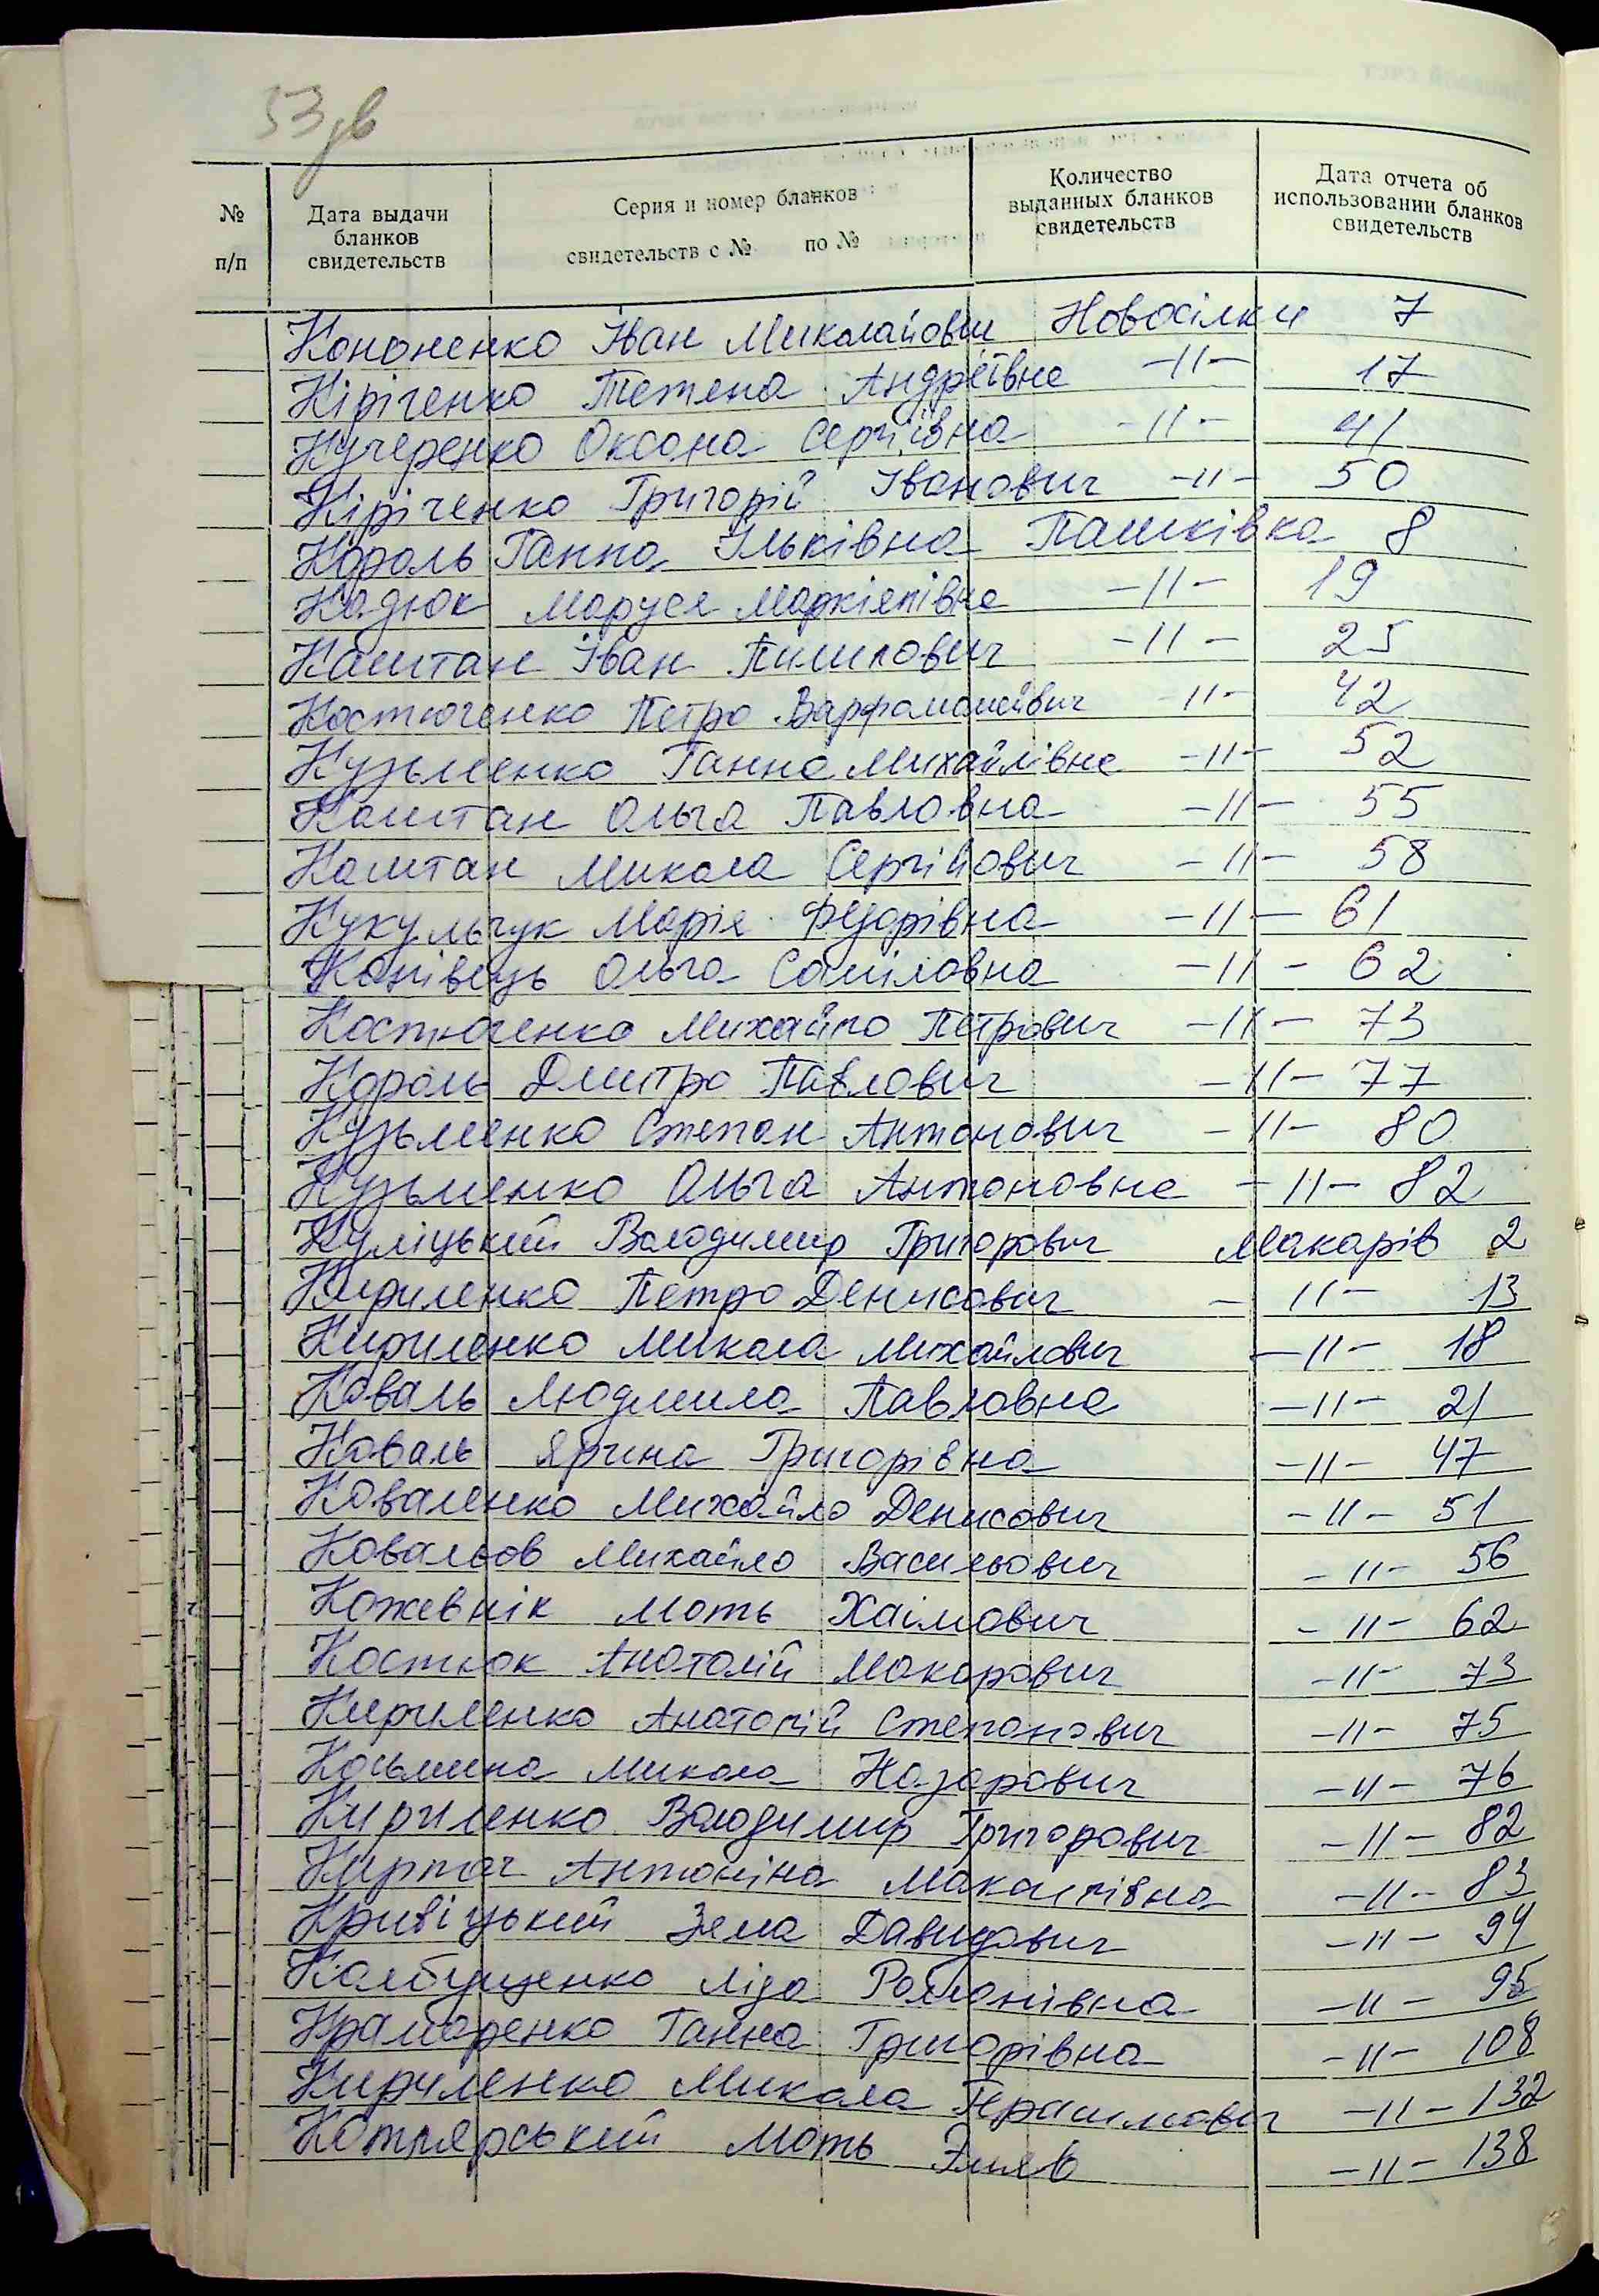 53зв
№ п/п
Дата выдачи бланков свидетельств
Серия и номер бланков свидетельств с № по №
Количество выданных бланков свидетельств
Дата отчета об использовании бланков свидетельств
Кононенко Іван Миколайович Новосілки 7
Кіріченко Тетена Андреївна -II- 17
Кучеренко Оксана Сергіївна -II- 41
Кіріченко Григорій Іванович -II- 50
Король Ганна Ільківна Пашківка 8
Кадюк Маруся Маркіянівна -II- 19
Каштан Іван Пилипович -II- 25
Костюченко Петро Варфоломейвич -II- 42
Кузьменко Ганна Михайлівна -II- 52
Каштан Ольга Павловна -II- 55
Каштан Микола Сергійович -II- 58
Кукульчук Марія Федорівна -II- 61
Канівець Ольга Саміловна -II- 62
Костюченко Михайло Петрович -II- 73
Король Дмитро Павлович -II- 77
Кузьменко Степан Антонович -II- 80
Кузьменко Ольга Антоновна -II- 82
Куліцький Володимир Григорович Макарів 2
Кириленко Петро Денисович -II- 13
Кириленко Микола Михайлович -II- 18
Коваль Людмила Павловна -II- 21
Коваль Ярина Григорівна -II- 47
Коваленко Михайло Денисович -II- 51
Ковальов Михайло Васильович -II- 56
Кожевнік Моть Хаімович -II- 62
Костюк Анатолій Макарович -II- 73
Кириленко Анатолій Степанович -II- 75
Косьмина Микола Назарович -II- 76
Кириленко Володимир Григорович -II- 82
Киртач Антоніна Макарівна -II- 83
Кривіцький Зяма Давидович -II- 94
Ліза Романівна -II- 95
Крамаренко Ганна Григорівна -II- 108
Кириленко Микола Герасимович -II- 132
Котлярський Моть -II- 138